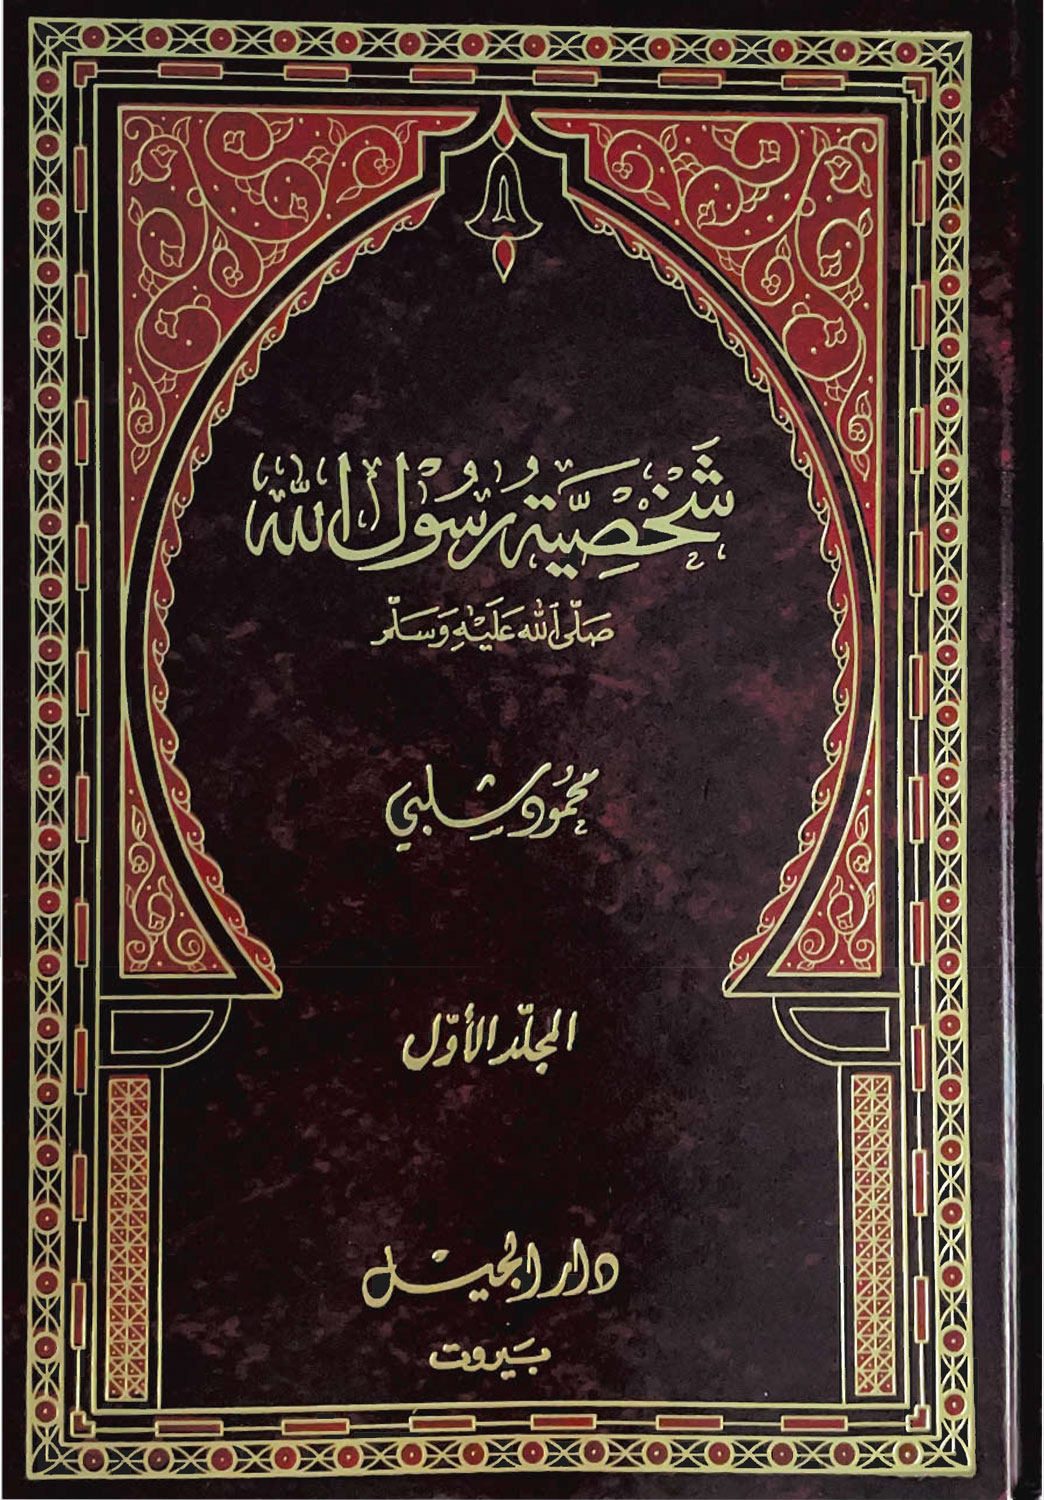 شَخْصِيَّةُ رسُولِ الله
صَلَّى اللَّه عَلَيْهِ وَسَلَّم
محمُود شلبي
المجلّد الأوّل
دار الجيْل
بَيروت